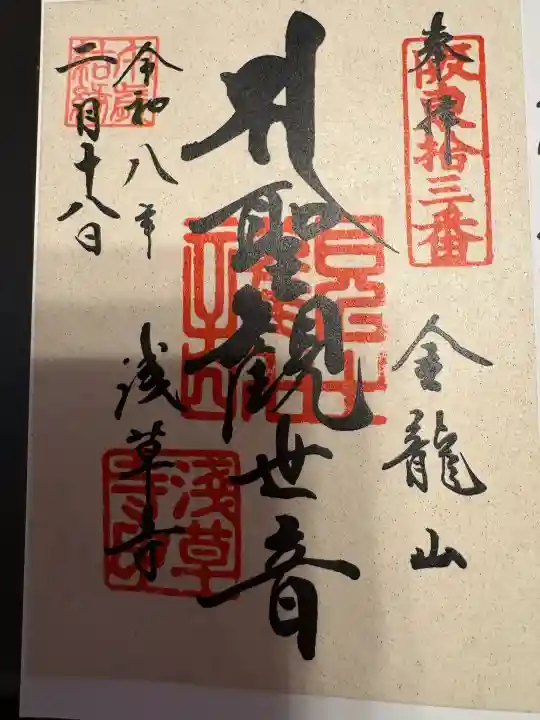 奉拝
坂東拾三番
金龍山
聖観世音
浅草寺
淺草寺印
令和八年
二月十八日